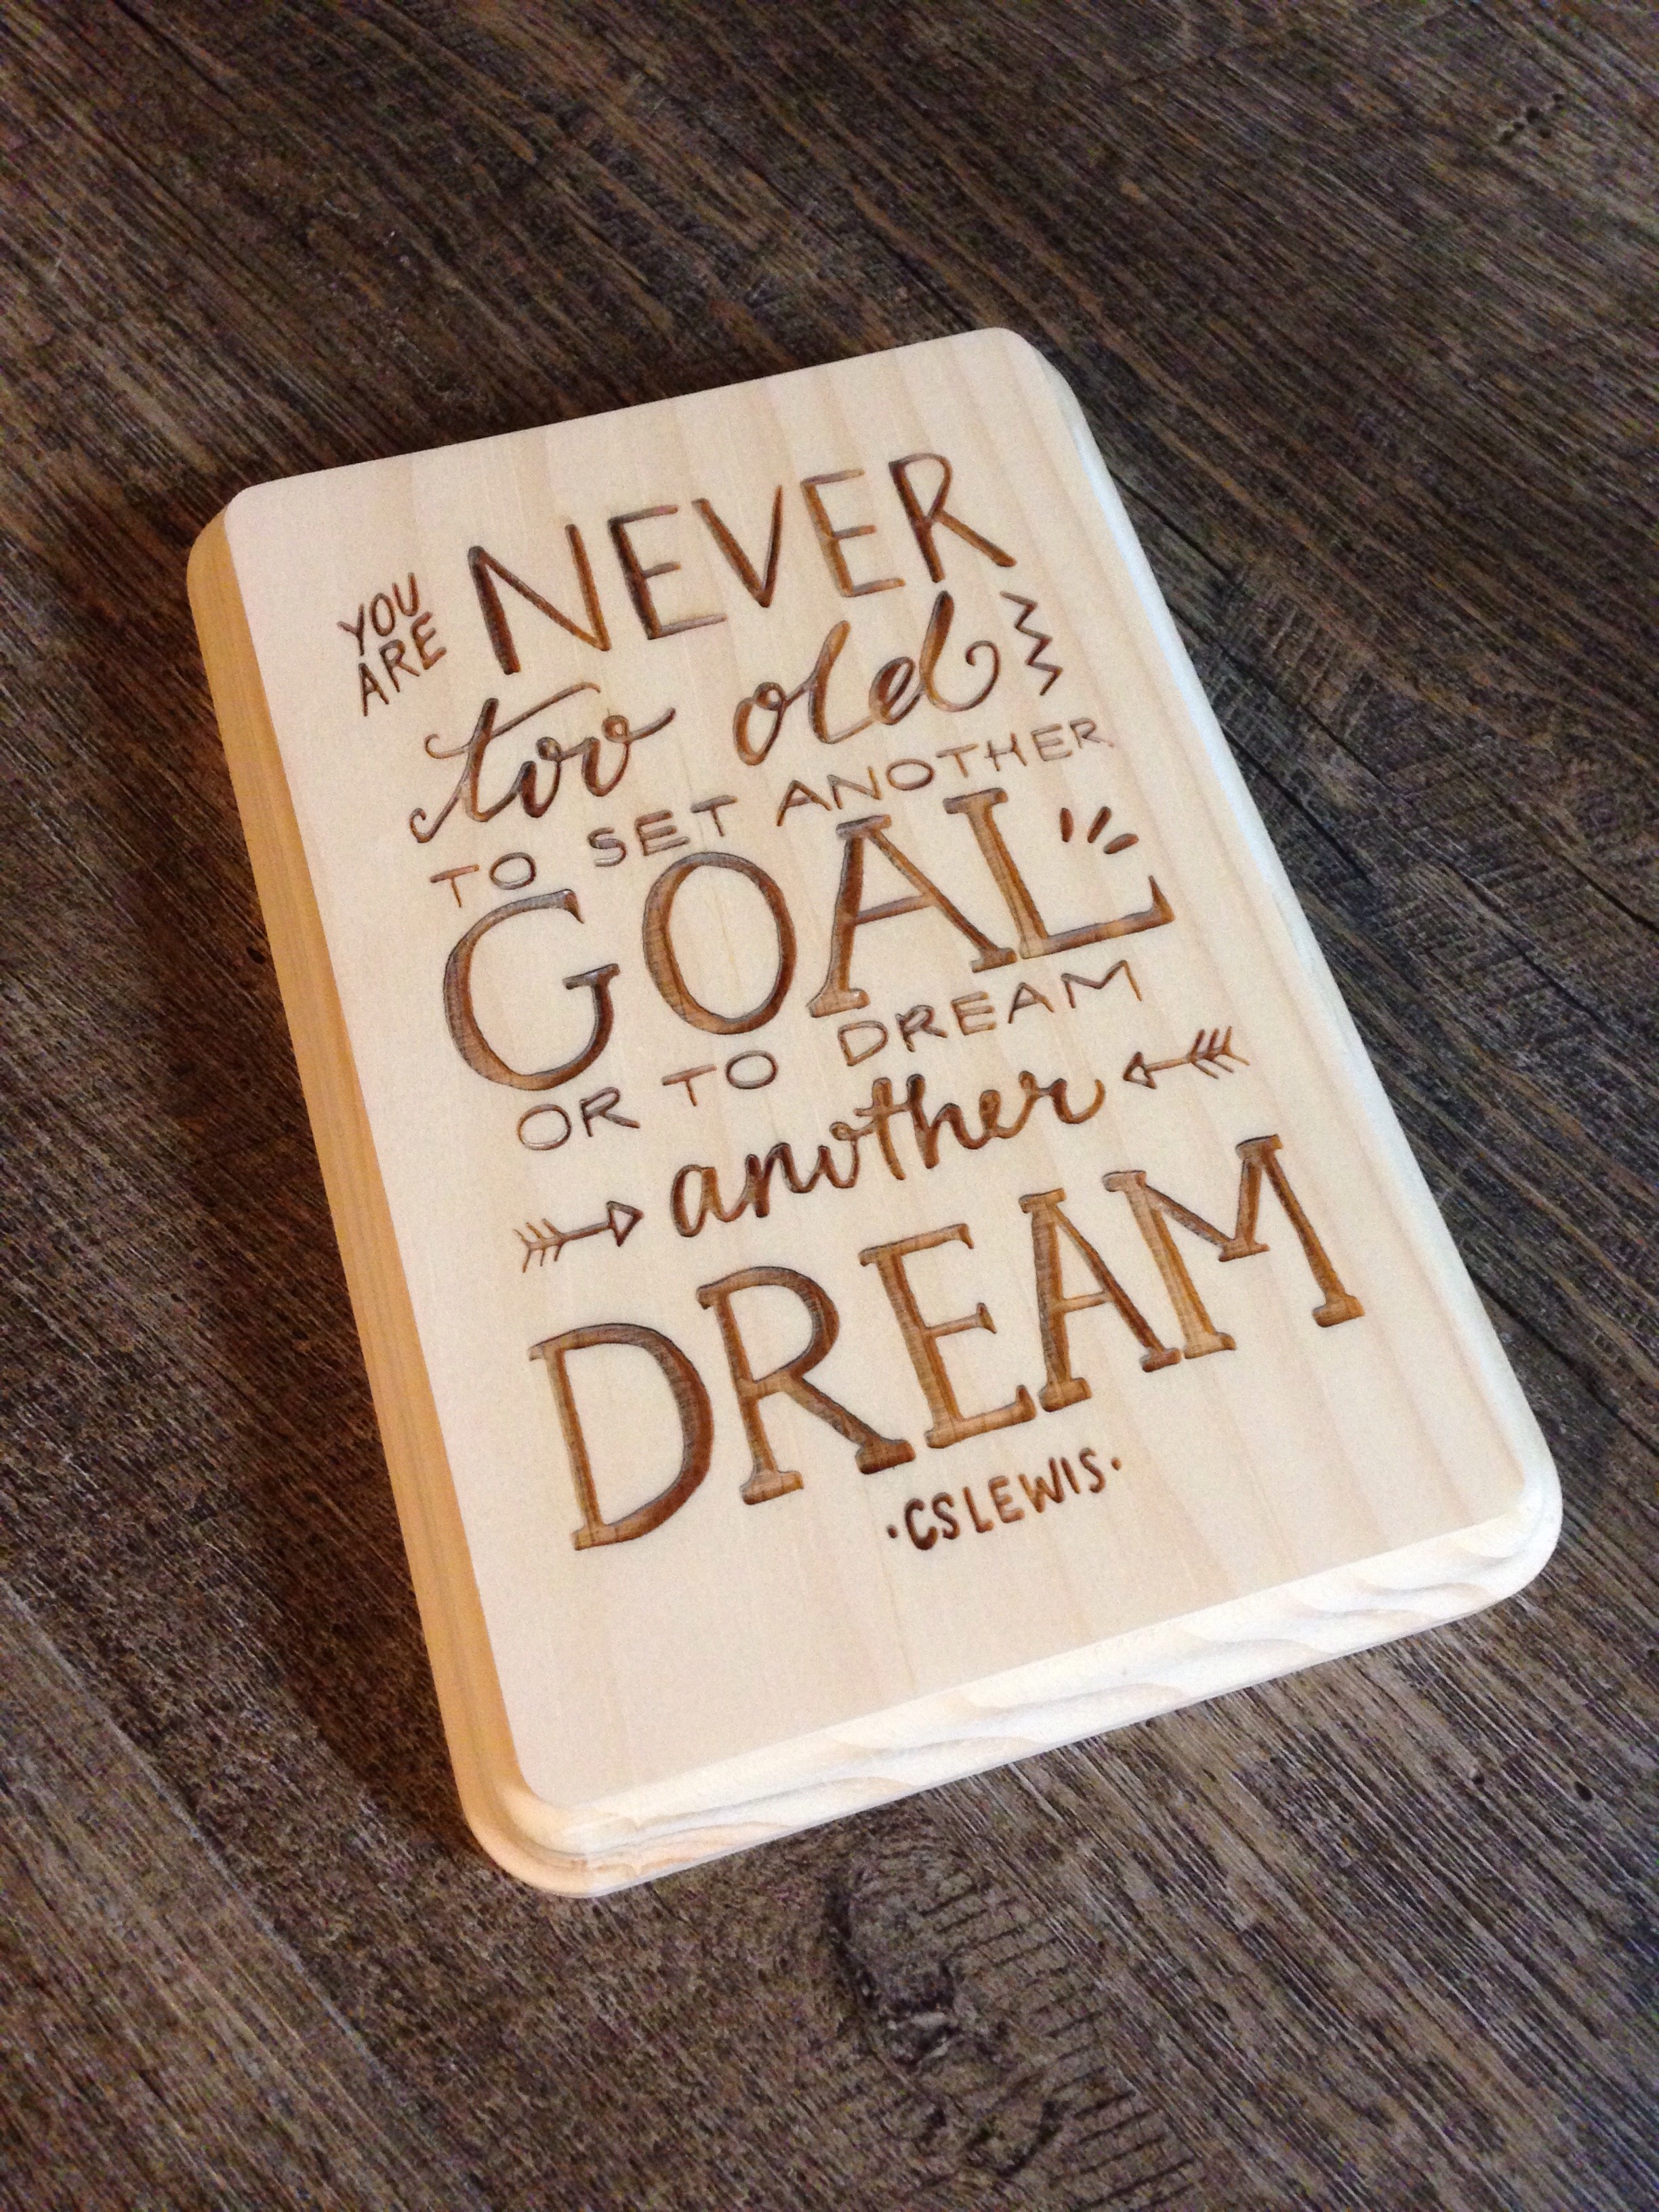 YOU
ARE NEVER
too old
TO SET ANOTHER
GOAL
OR TO DREAM
another
DREAM
·CSLEWIS·